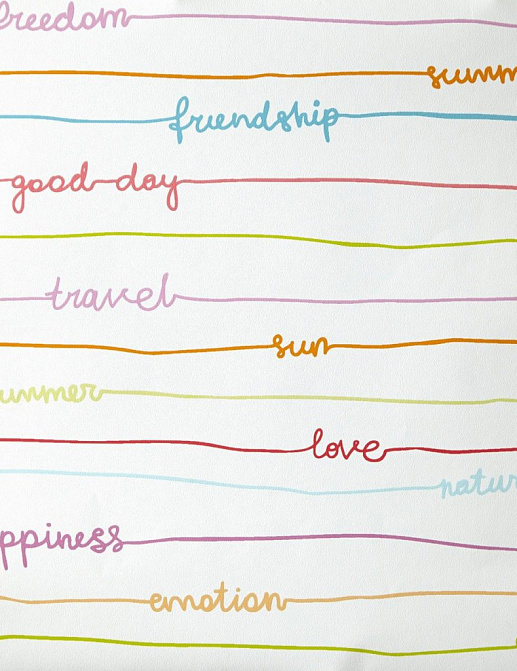 freedom
summ
friendship
good day
travel
sun
ummer
love
natur
ppiness
emotion